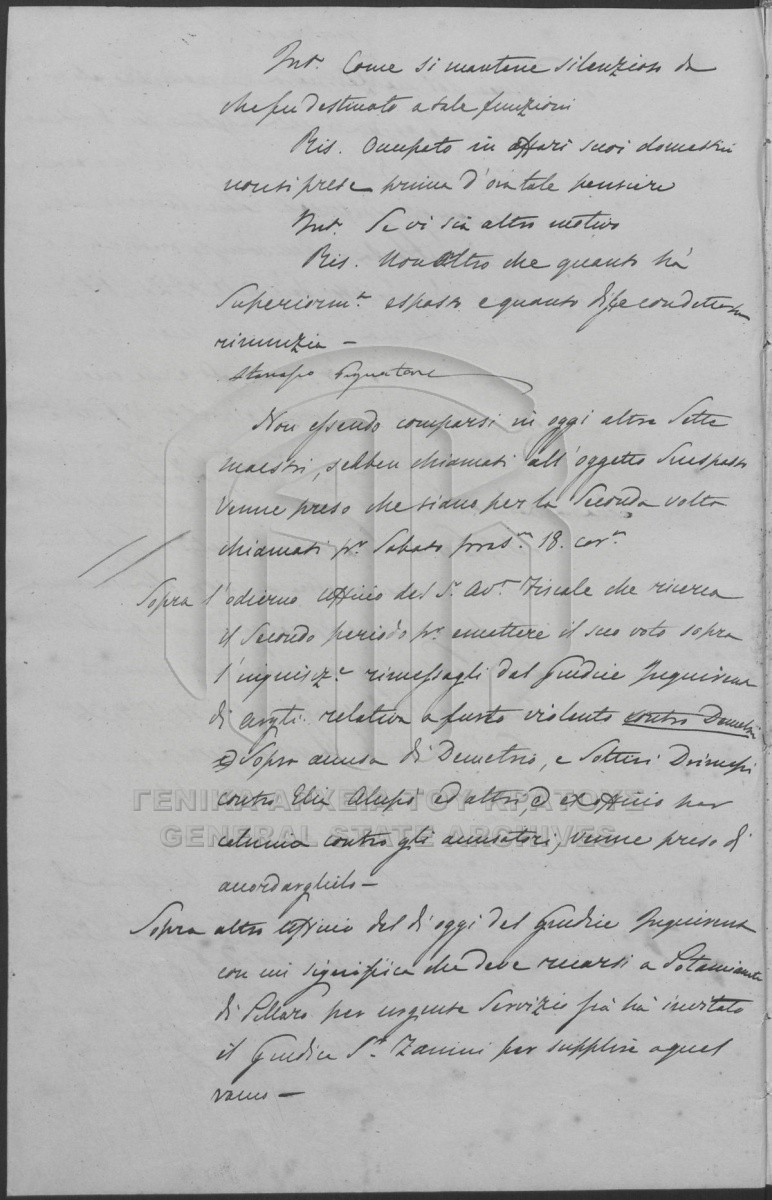 Int. Come si mantene silenzioso da
che fu destinato a tale funzioni
Ris. Occupato in affari suoi domestici
non si prese prima d'ora tale pensiere
Int. Se vi sia altro motivo
Ris. Non altro che quanto hà
Superiorm.te esposto e quanto disse con detta sua
rinunzia —
Non essendo comparsi in oggi altri Sette
maestri, sebben chiamati all'oggetto Suesposto
Venne preso che siano per la Seconda volta
chiamati p.r Sabato pros.o 18. cor.e
Sopra l'odierno Officio del S.r Av.t Fiscale che ricerca
il Secondo periodo p.r emettere il suo voto sopra
l'inquisiz.e rimessagli dal Giudice Inquirente
di relativa a furto violento contro Demetrio
e Sopra accusa di Demetrio, e Sotiri
contro Elia Alupò ed altri, ed ex officio per
calunia contro gli accusatori, venne preso di
accordarglielo —
Sopra altro Officio del di oggi del Giudice Inquirente
con cui significa che deve recarsi a
di per urgente Servizio già hà invitato
il Giudice S.r Zanini per supplire a quel
ramo —
ΓΕΝΙΚΑ ΑΡΧΕΙΑ ΤΟΥ ΚΡΑΤΟΥΣ
GENERAL STATE ARCHIVES